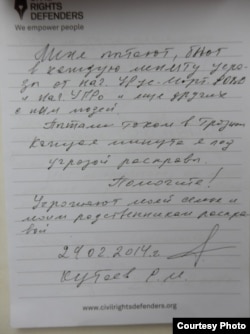 RIGHTS
DEFENDERS
We empower people
Меня пытают, бьют
в каждую минуту угро-
зы от нач. Урус-Март. РОВД
и нач УПРо и еще других
с ним людей.
Пытали током в Грозном
каждая минута я под
угрозой расправы
Помогите!
Угрожают моей семье и
моим родственникам распра
вой
24.02.2014г.
Кутаев Р.М
www.civilrightsdefenders.org
Courtesy Photo